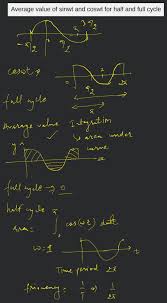 Average value of sinwt and coswt for half and full cycle
π
coswt →
full cycle
Average value
Integration
↳ area under
curve
y
x
full cycle → 0
half cycle
area:
cos(ωt) dt
ω =
t
Time period 2π
frequency = 1/T ⇒ 1/2π